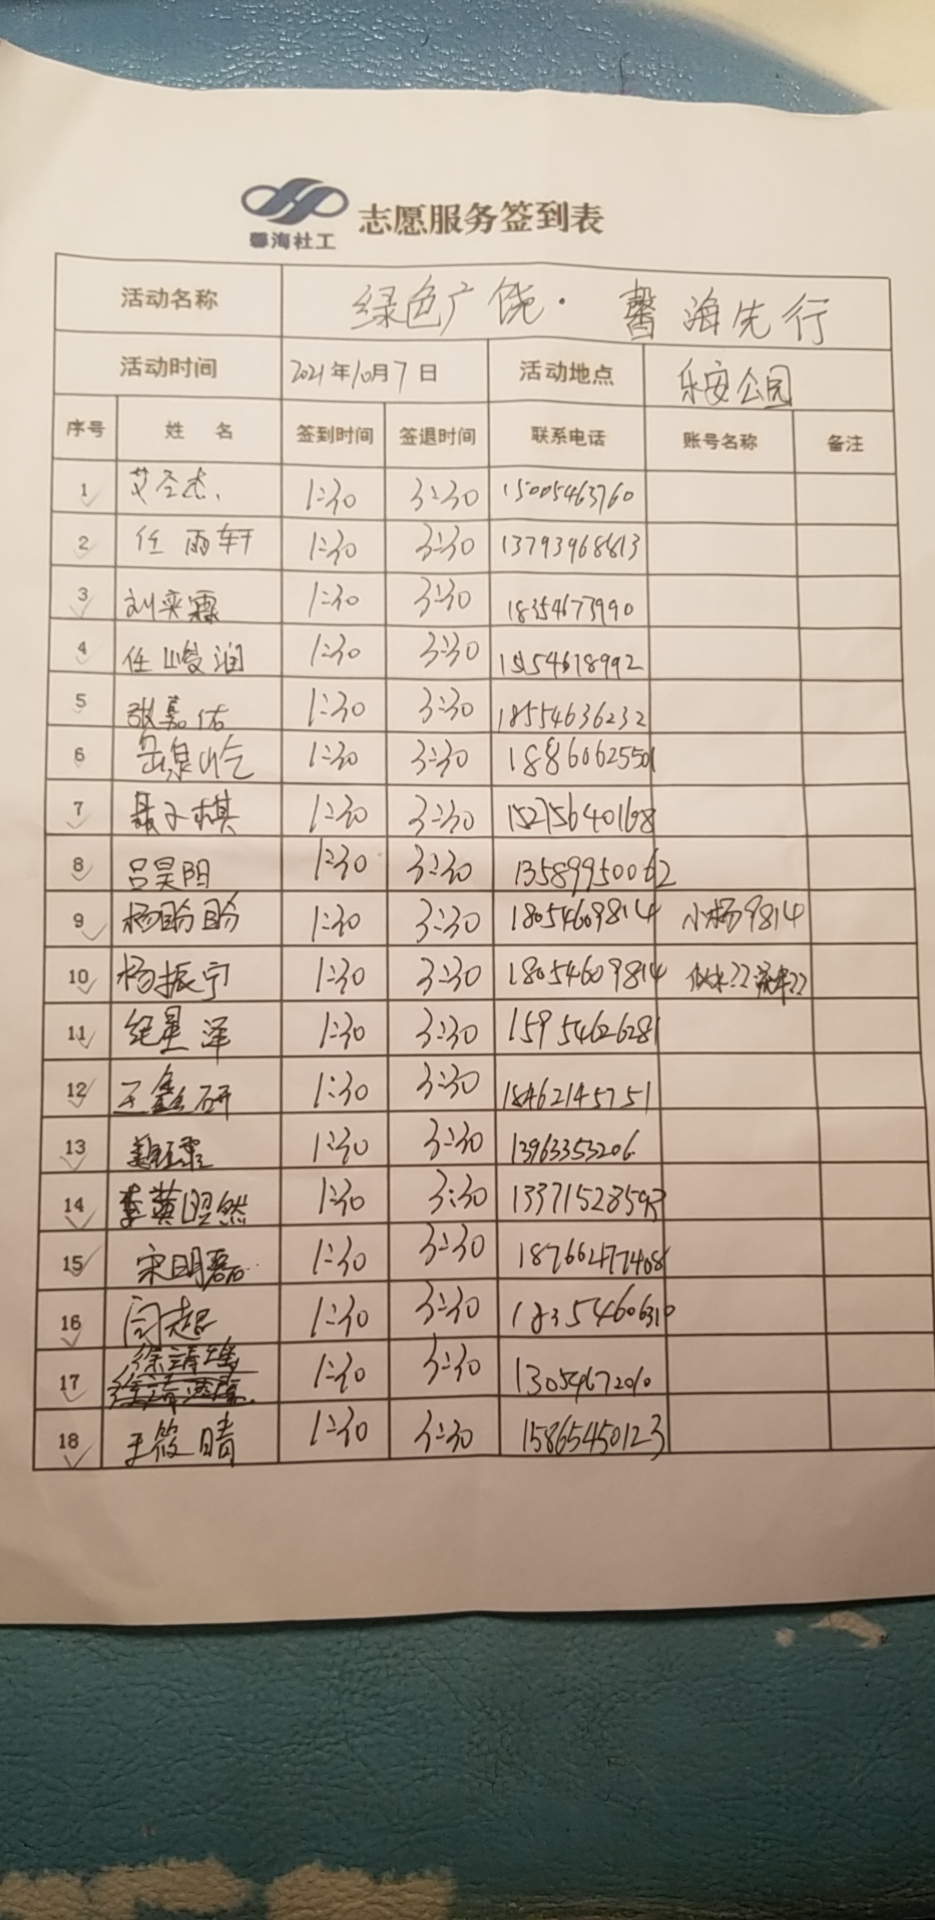 馨海社工 志愿服务签到表
活动名称 绿色广饶·馨海先行
活动时间 2021年10月7日 活动地点 乐安公园
序号 姓名 签到时间 签退时间 联系电话 账号名称 备注
1 艾圣杰 1:30 3:30 15005463760
2 任雨轩 1:30 3:30 13793968813
3 刘奕霖 1:30 3:30 18354673990
4 任峻润 1:30 3:30
5 张嘉佑 1:30 3:30 18554636232
6 1:30 3:30 18860625501
7 聂子棋 1:30 3:30 15275640168
8 吕昊阳 1:30 3:30 13589950062
9 杨盼盼 1:30 3:30 18054609814 小杨9814
10 杨振宁 1:30 3:30 18054609814
11 纪星泽 1:30 3:30 15954626281
12 王鑫研 1:30 3:30 18462145751
13 1:30 3:30 13963353206
14 李黄曌然 1:30 3:30
15 宋明磊 1:30 3:30 18766477408
16 闫超 1:30 3:30 18354606310
17 1:30 3:30 13054672010
18 王筱晴 1:30 3:30 15865450123